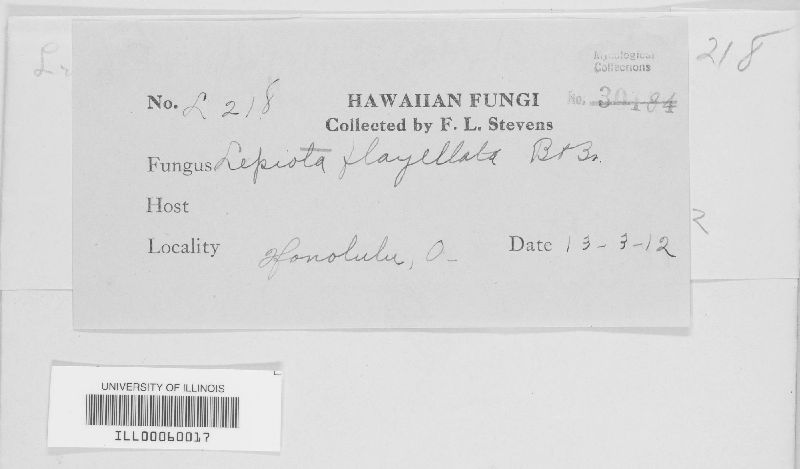 218
Mycological
Collections
No. 30184
No. L 218
HAWAIIAN FUNGI
Collected by F. L. Stevens
Fungus Lepiota flagellata B & Br.
Host
Locality Honolulu, O-
Date 13-3-12
UNIVERSITY OF ILLINOIS
ILL00060017